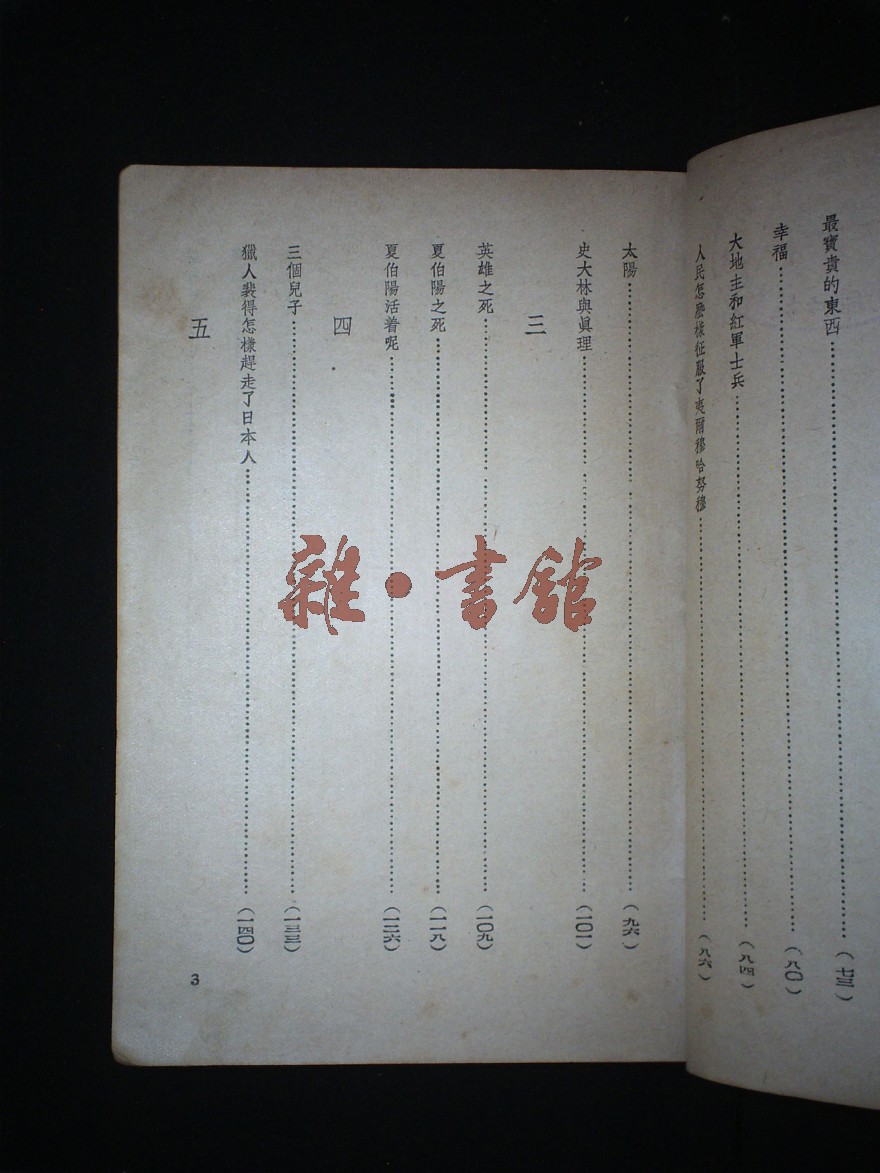 最寶貴的東西……(七三)
幸福……(八〇)
大地主和紅軍士兵……(八四)
人民怎麽樣征服了夷爾穆哈努穆……(八六)
太陽……(九六)
史大林與眞理……(一〇一)
三
英雄之死……(一〇九)
夏伯陽之死……(一一八)
夏伯陽活着呢……(一二六)
四
三個兒子……(一三三)
獵人裴得怎樣趕走了日本人……(一四〇)
五
3
雜·書館